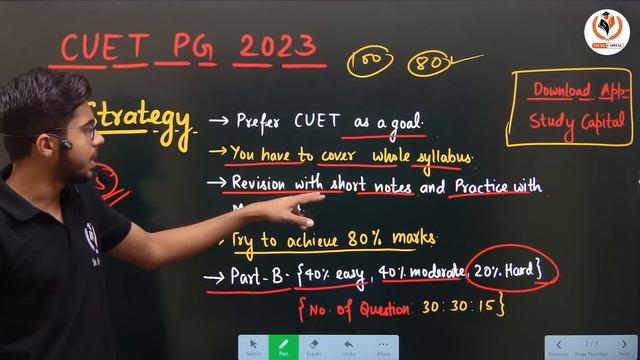 CUET PG 2023
100 80
STUDY CAPITAL
Download App-
Study Capital
Strategy
→ Prefer CUET as a goal.
→ You have to cover whole syllabus.
→ Revision with short notes and Practice with
→ Try to achieve 80% marks
→ Part-B- {40% easy, 40% moderate, 20% Hard}
{No. of Question: 30:30:15}
Select Pen Eraser Undo More
Previous 2 / 3 Next